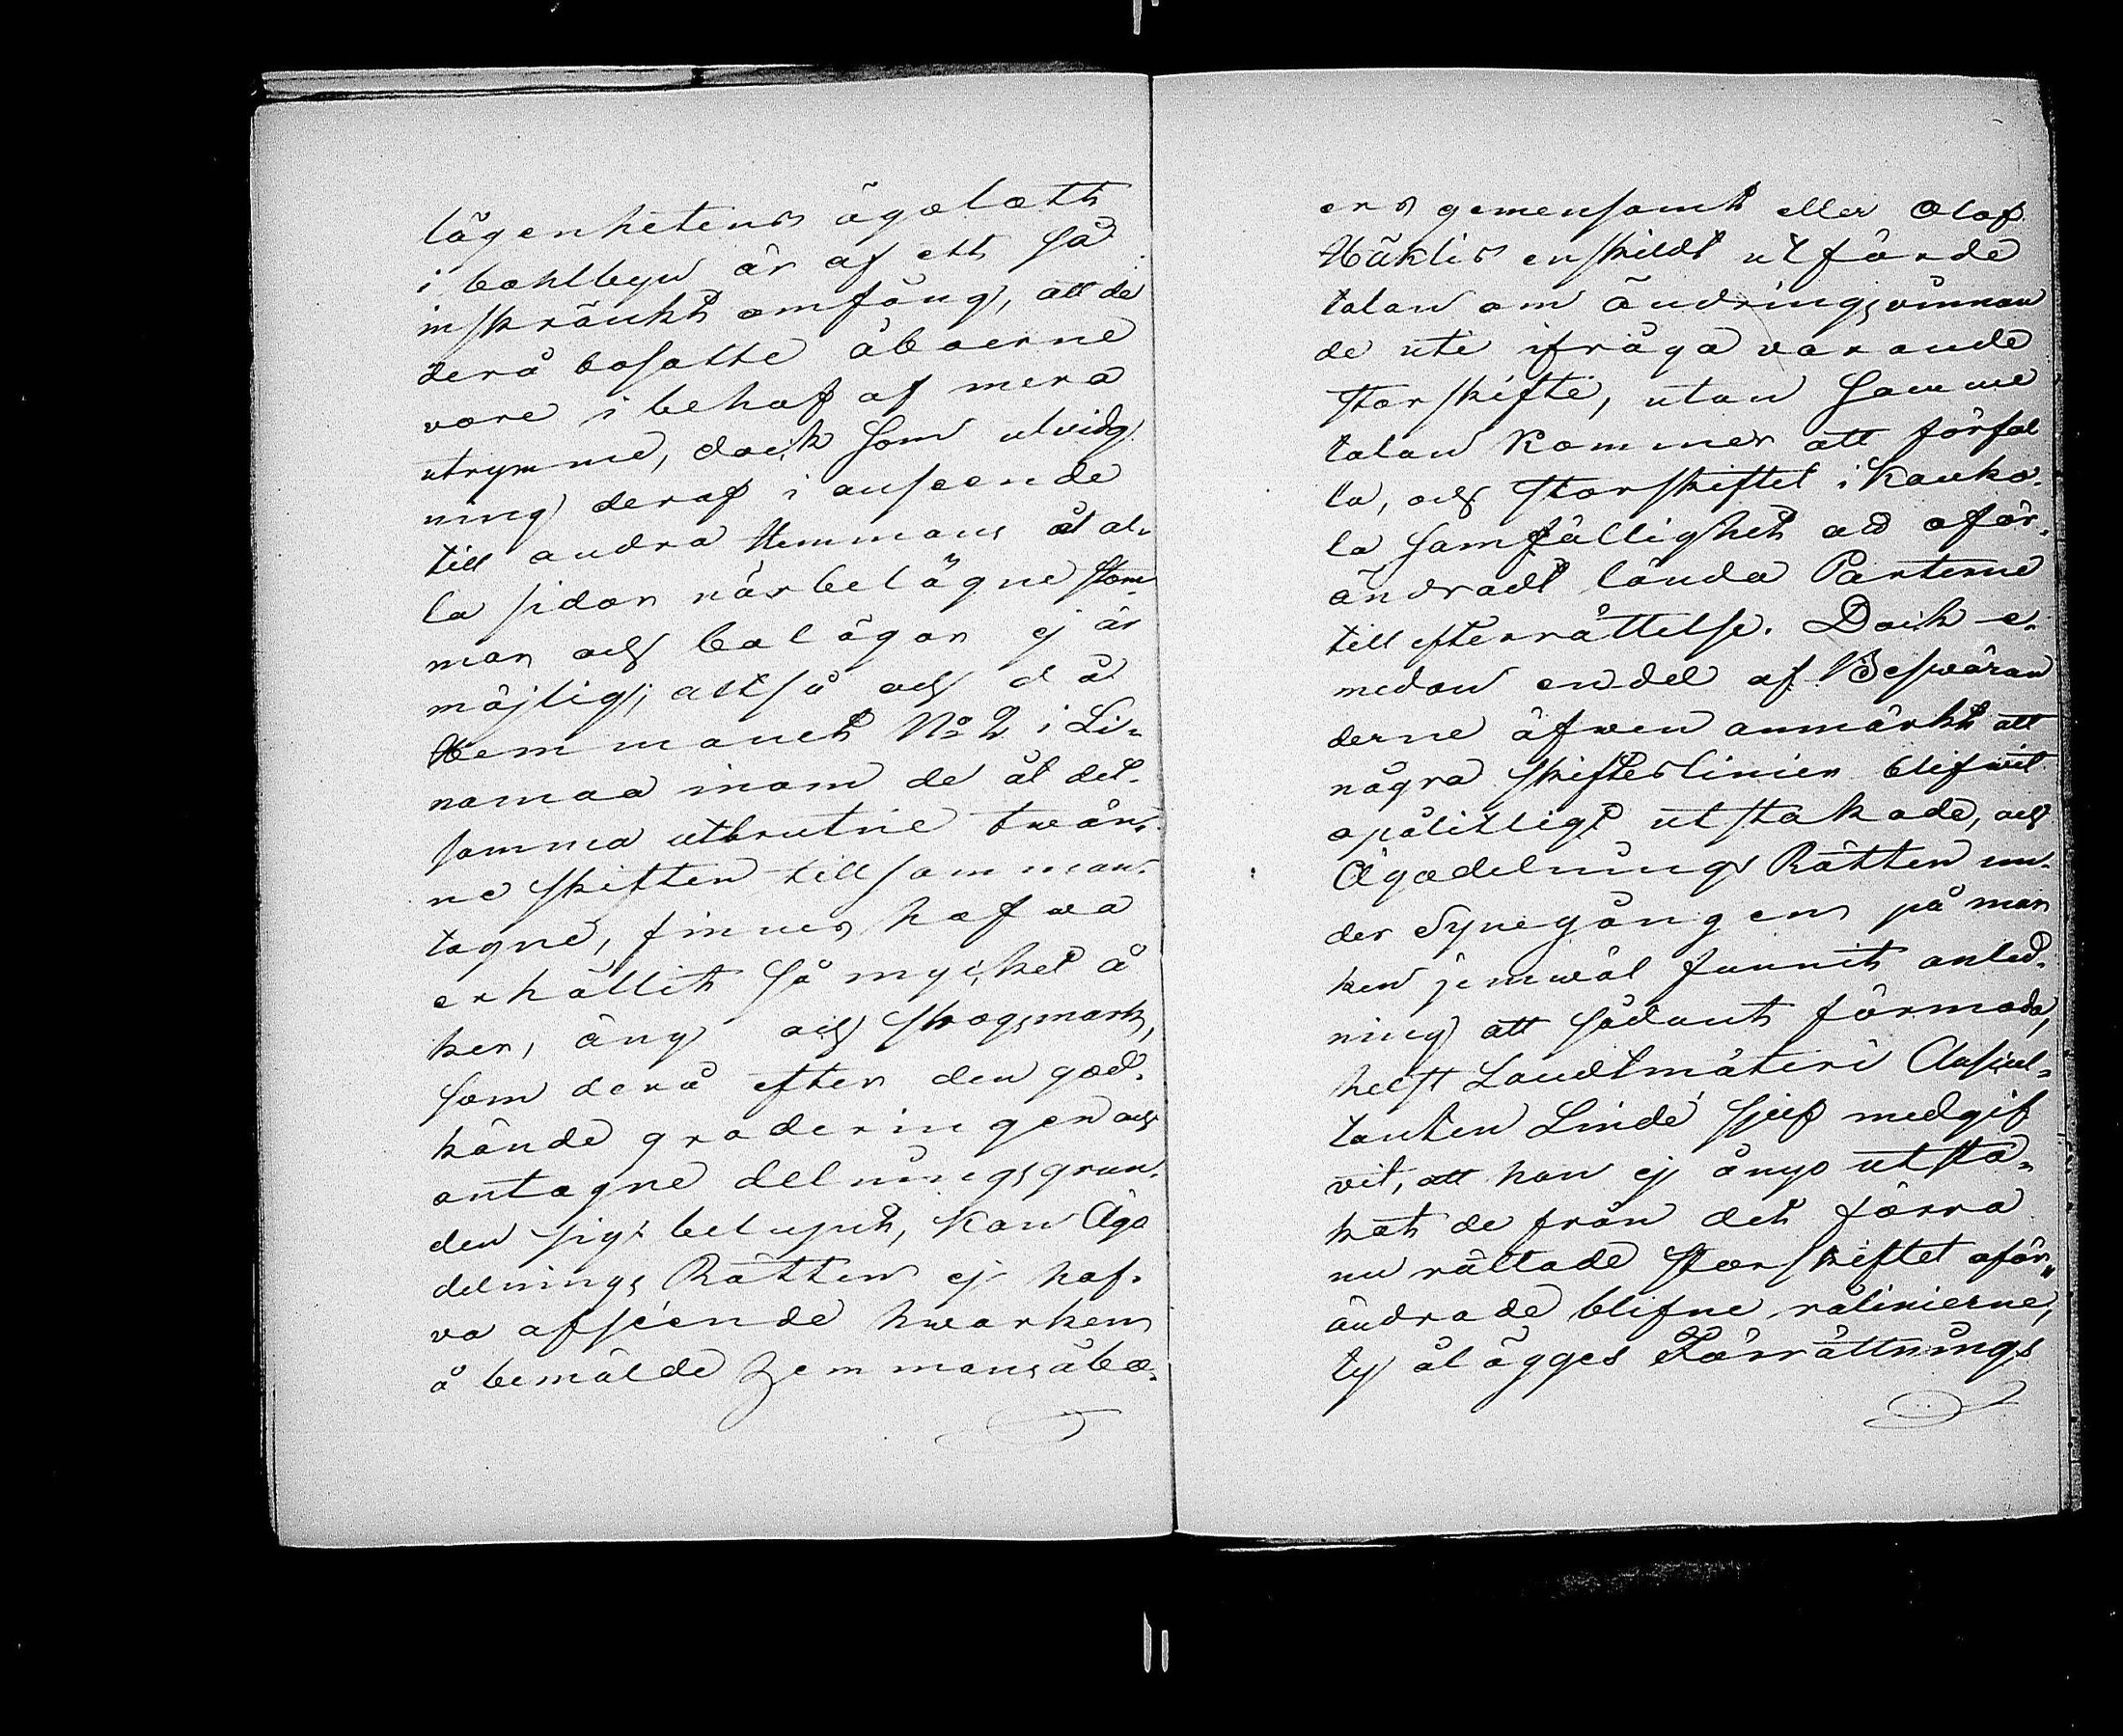 lägenhetens ägolott
i bohlbyn är af ett så
inskränkt omfång, att de
derå bosatte åboerne
vore i behof af mera
utrymme, dock som utvidg
ning deraf i anseende
till andra Hemmans åt al-
la sidor närbelägne stom
mar och bolägor ej är
möjlig; altså och då
Hemmanet No 2 i Li-
namaa inom de åt det-
samma utbrutne twän-
ne skiften tillsamman-
tagne, finnes hafwa
erhållit så mycket å
ker, äng och skogsmark,
som derå efter den god-
kände graderingen och
antagne delningsgrun-
den sig belupit, kan Ägo
delnings Rätten ej haf-
va afseende hwarken
å bemälde Hemmansåbo-
ers gemensamt eller Olof
Häklis enskildt utförde
talan om ändringsvinnan
de uti ifråga varande
storskifte, utan samme
talan kommer att förfal
la, och storskiftet i Kauko-
la samfällighet att oför-
ändradt lända Parterne
till efterrättelse. Dock e-
medan endel af Beswäran
derne äfwen anmärkt att
några skifteslinier blifwit
opålitligt utstakade, och
Ägodelnings Rätten un-
der Synegången på mar
ken jemwäl funnit anled-
ning att sådant förmoda,
helst Landtmäteri Auscul-
tanten Lindé sjelf medgif
vit, att han ej ånyo utsta-
kat de från det förra
nu rättade storskiftet oför-
ändrade blifne rålinierne,
ty ålägges Förrättnings